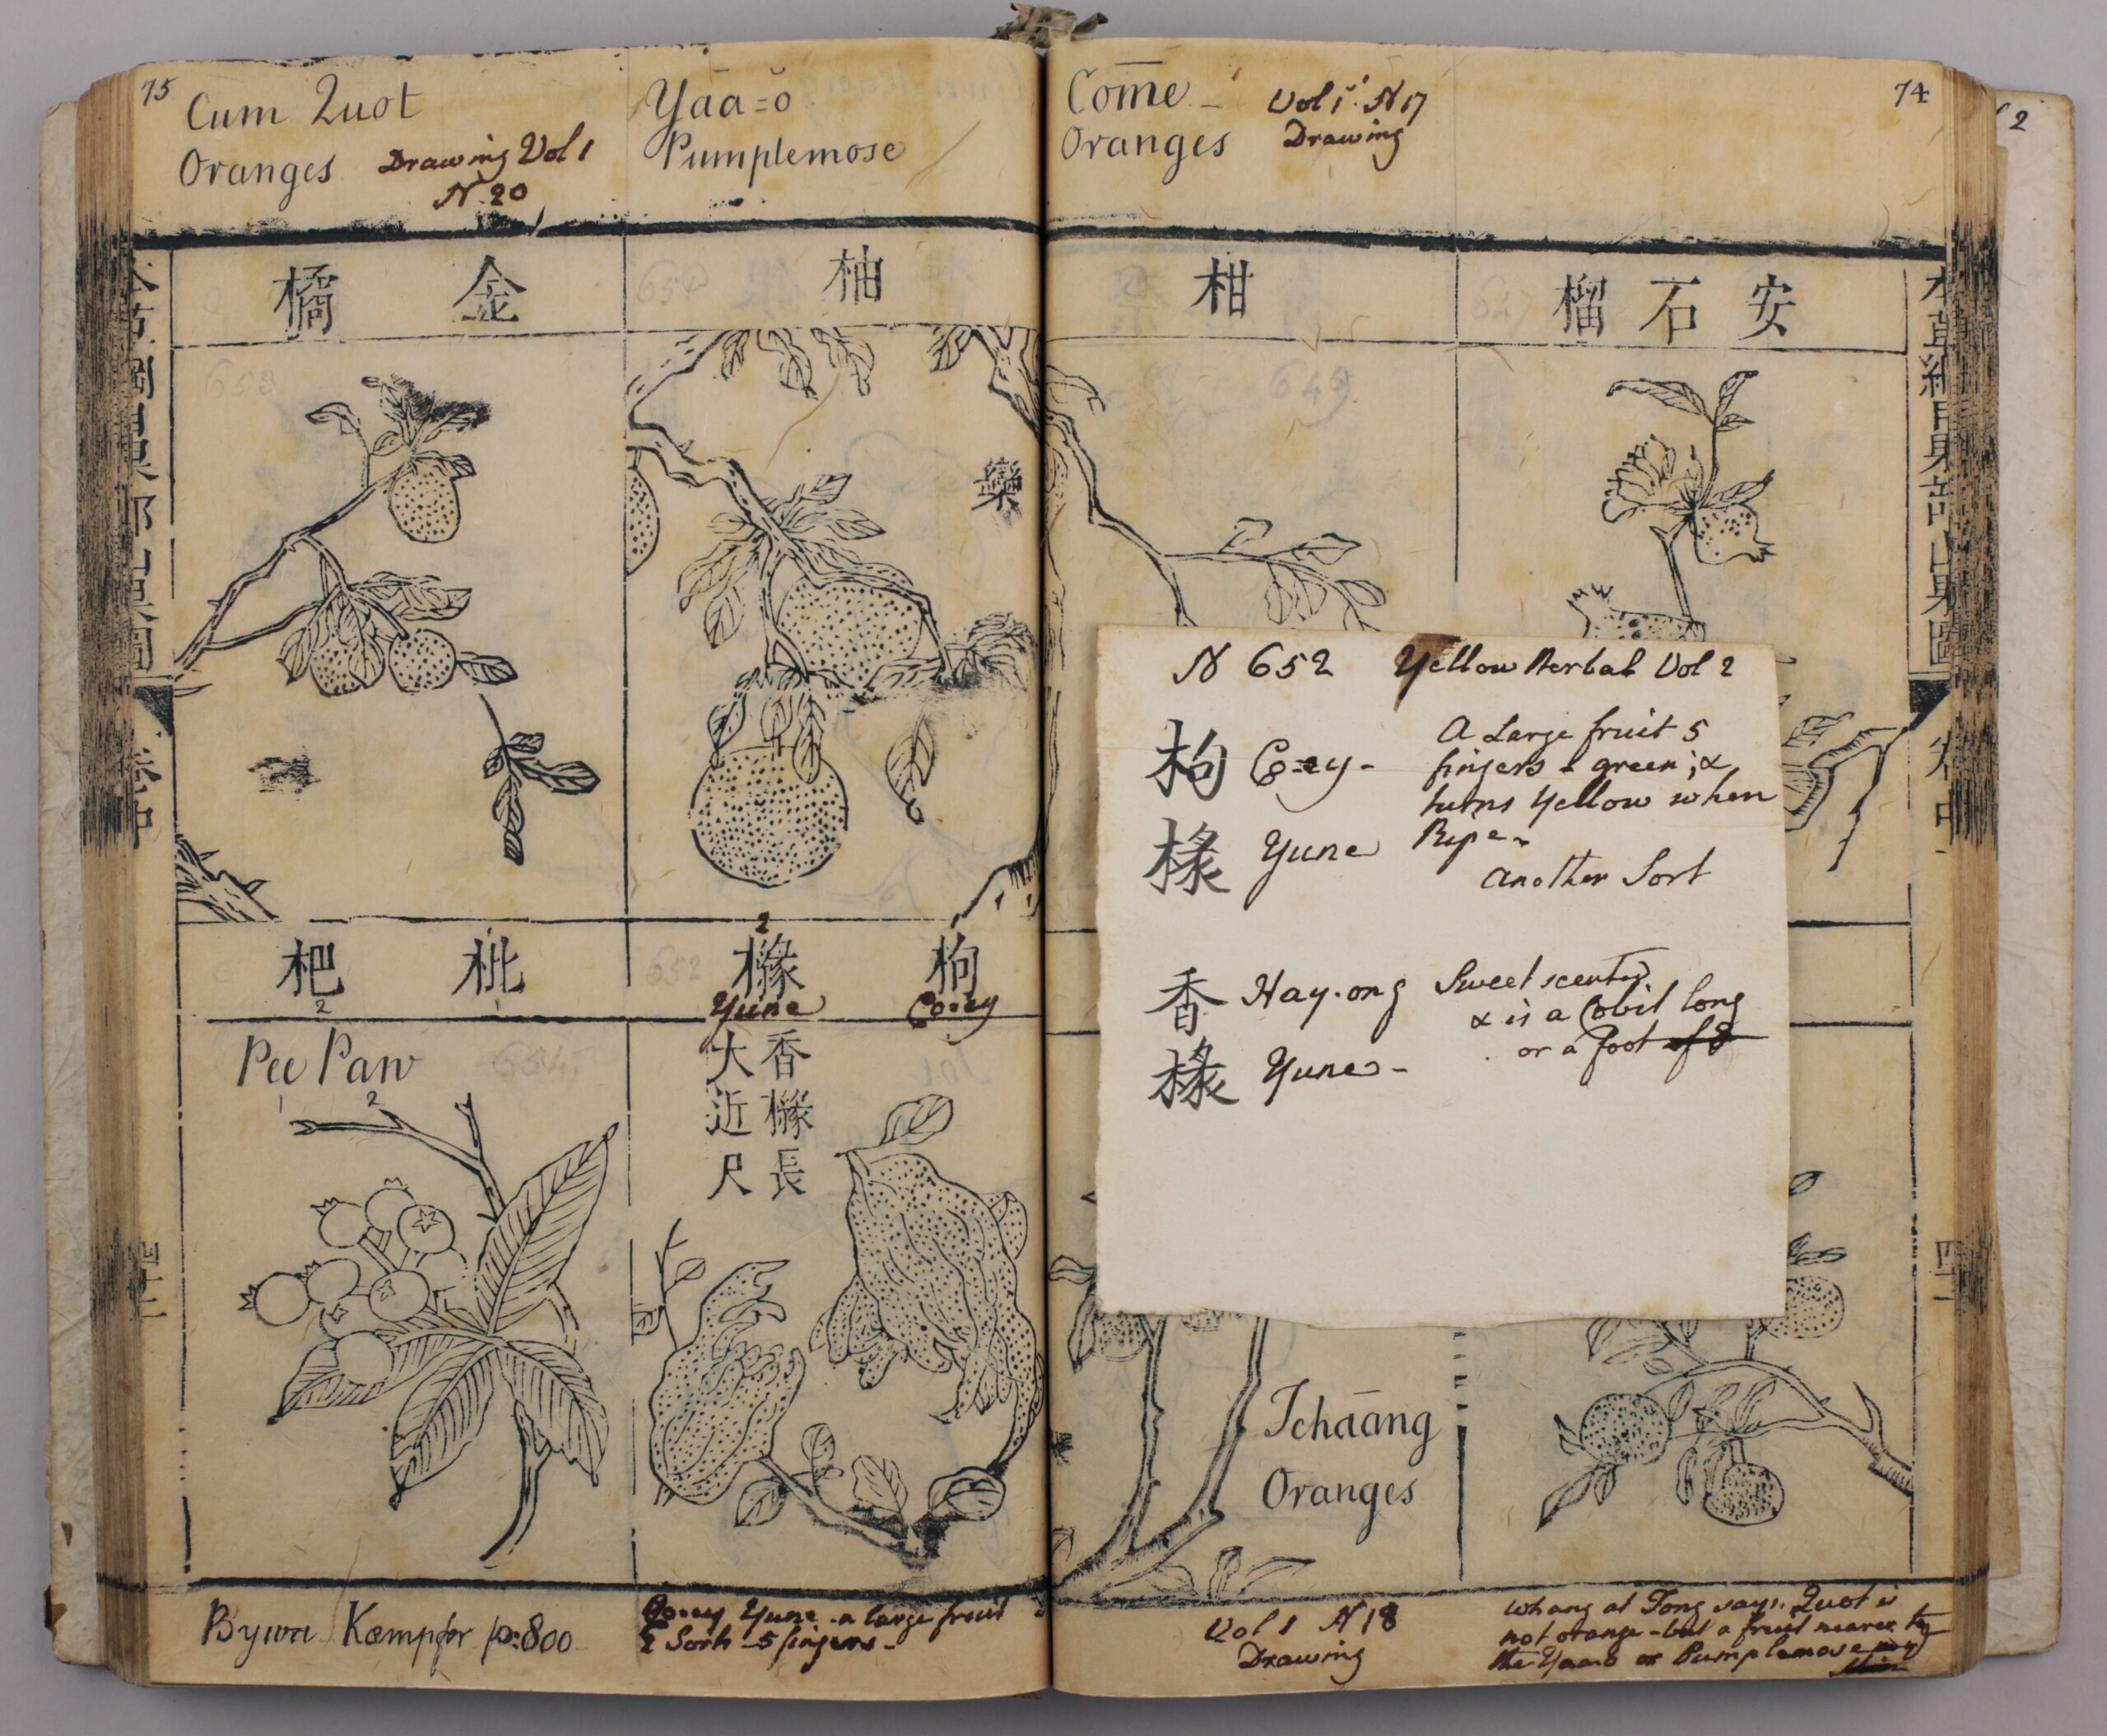 75
Cum Quot
Oranges
Drawing Vol 1
N. 20
Yāa=ŏ
Pumplemose
橘 金
柚
欒
杷 枇
2 1
Pee Paw
1 2
2
櫞 枸
Yune Co=ey
香櫞長
大近尺
652
653
Bywa Kæmpfer p:800
Co=ey Yune - a large fruit
2 Sorts - 5 fingers -
Come
Oranges
Vol 1st N 17
Drawing
74
2
柑
榴 石 安
649
647
N 652 Yellow Herbal Vol 2
枸 Co=ey -
A Large fruit 5
fingers - green; &
turns Yellow when
Ripe -
櫞 Yune
another Sort
香 Hay-ong
Sweet scented
& is a Cobit long
or a foot of 8
櫞 Yune -
Tchāāng
Oranges
Vol 1 N 18
Drawing
Whang at Tong says. Quot is
not orange - but a fruit nearer to
the Yaa o or Pumplemose